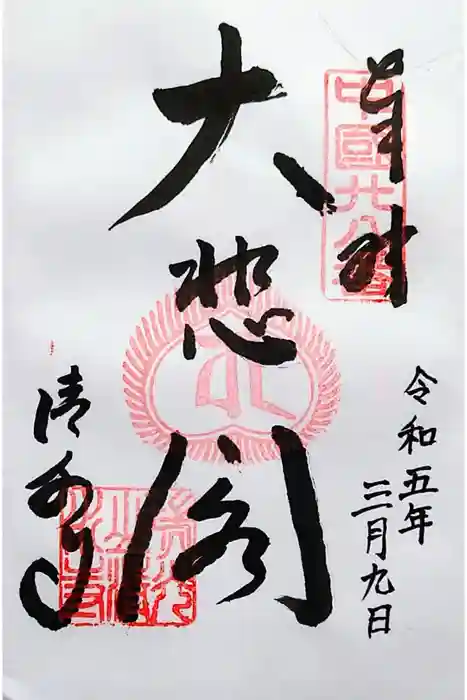 奉拝
中國廿八番
令和五年
三月九日
大悲閣
清水寺